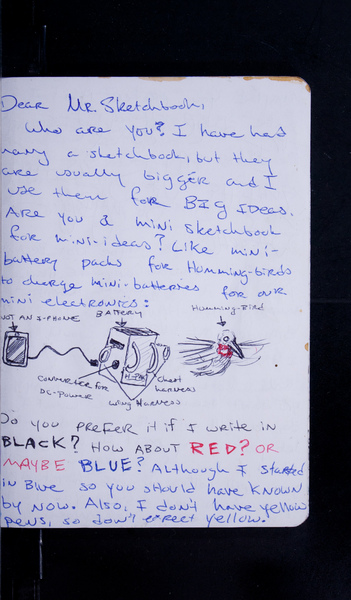 Dear Mr. Sketchbook,
Who are you? I have had
many a sketchbook, but they
are usually bigger and I
use them for BIG IDeas.
Are you a mini sketchbook
for mini-ideas? Like mini-
battery packs for Humming-birds
to charge mini-batteries for our
mini electronics:
NOT AN I-PHONE
BATTERY
Humming-Bird
Converter for
DC-Power
Chest
harness
wing Harness
Do you prefer it if I write in
BLACK? HOW ABOUT RED? OR
MAYBE BLUE? Although I started
in Blue so you should have known
by now. Also, I don't have yellow
pens, so don't expect yellow.